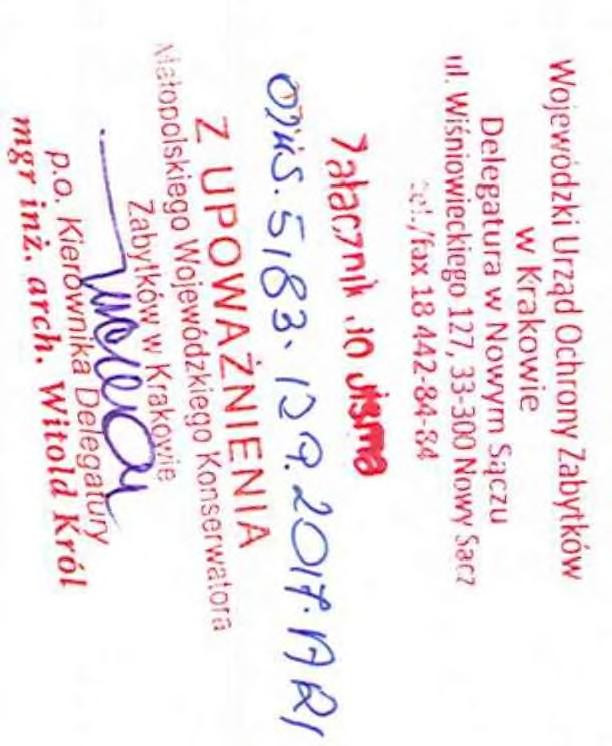 Wojewódzki Urząd Ochrony Zabytków
w Krakowie
Delegatura w Nowym Sączu
ul. Wiśniowieckiego 127, 33-300 Nowy Sącz
tel./fax 18 442-84-84
Załącznik do pisma
5183.129.2017.
Z UPOWAŻNIENIA
Małopolskiego Wojewódzkiego Konserwatora
Zabytków w Krakowie
p.o. Kierownika Delegatury
mgr inż. arch. Witold Król